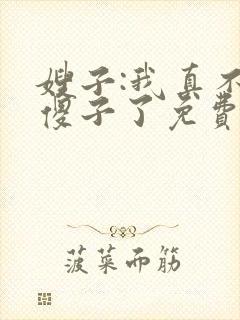 嫂子:我真不
傻子了免费
菠菜而筋